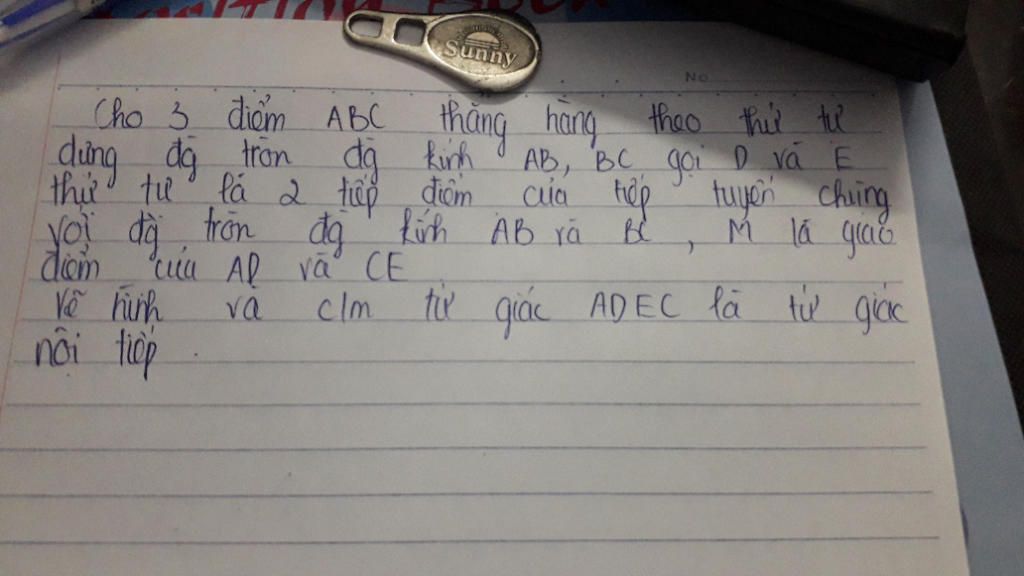 Sunny
No
Cho 3 điểm ABC thẳng hàng theo thứ tự
dựng đg tròn đg kính AB, BC gọi D và E
thứ tự là 2 tiếp điểm của tiếp tuyến chung
với đg tròn đg kính AB và BC, M là giao
điểm của AD và CE
Vẽ hình và c/m tứ giác ADEC là tứ giác
nội tiếp.